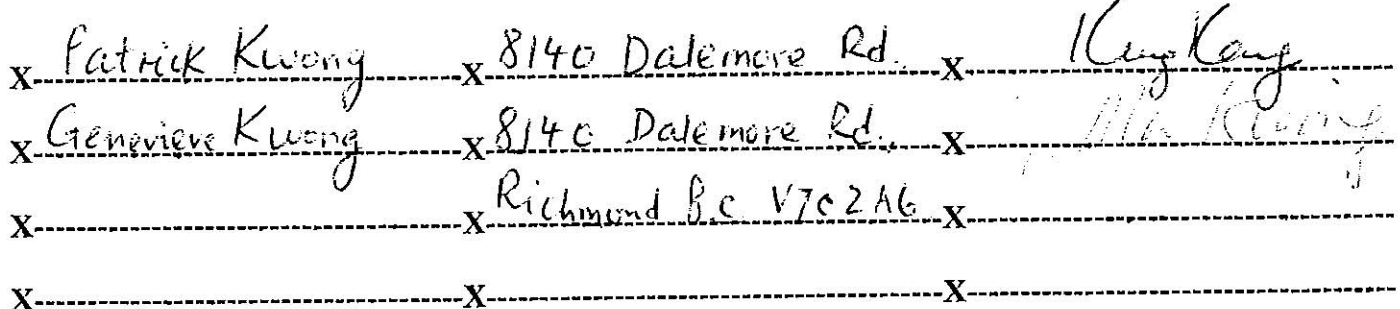 x Patrick Kwong x 8140 Dalemore Rd. x
x Genevieve Kwong x 8140 Dalemore Rd. x Kwong
x x Richmond B.C. V7C2A6 x
x x x